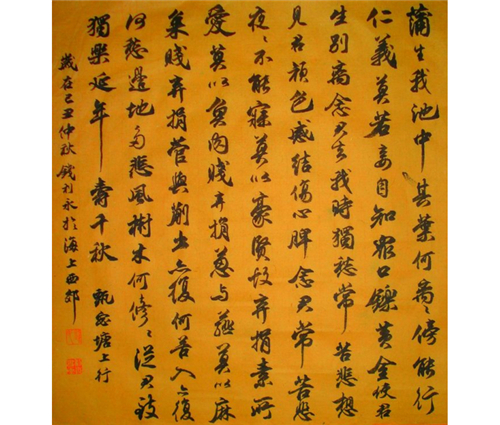 蒲生我池中其葉何离〻傍能行
仁義莫若妾自知眾口鑠黄金使君
生別离念君去我時獨愁常苦悲想
見君顏色感結傷心脾念君常苦悲
夜〻不能寐莫以豪賢故弃捐素所
愛莫以魚肉賤弃捐葱与薤莫以麻
枲賤弃捐菅與蒯出亦復何苦入亦復
何愁邊地多悲風樹木何修〻從君致
獨樂延年壽千秋 甄宓塘上行
歲在己丑仲秋钱利永於海上西郊